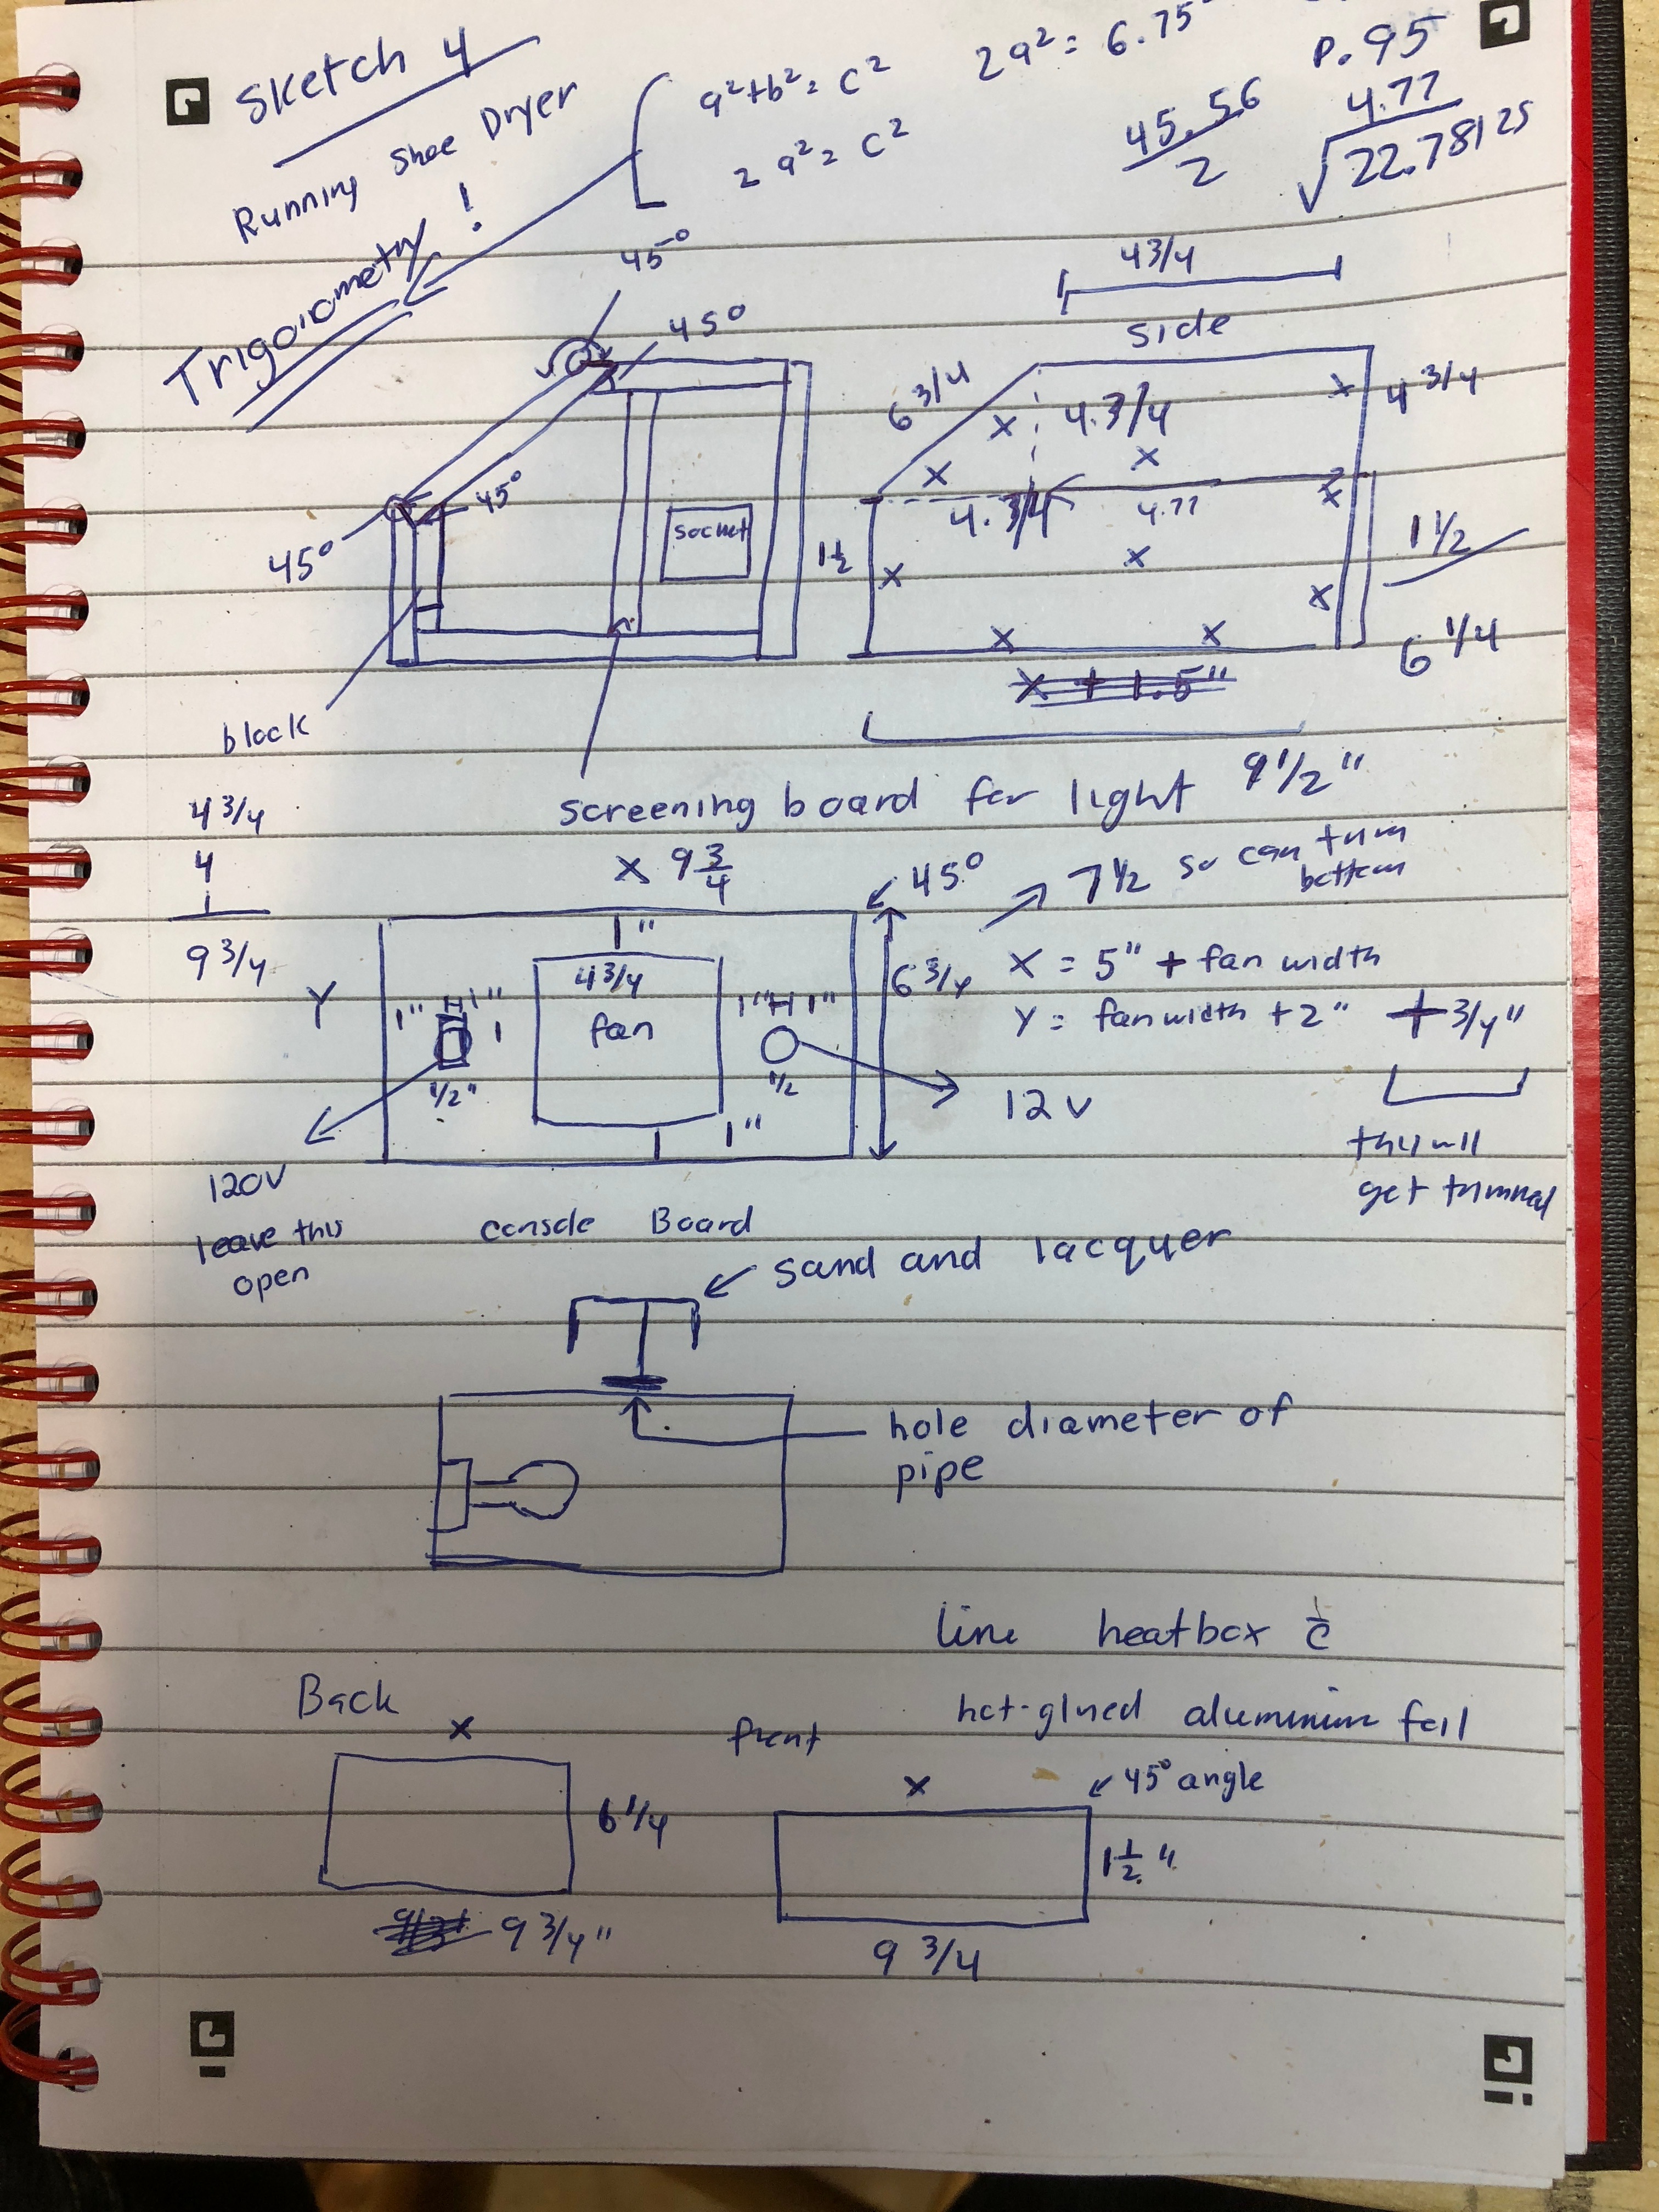 Sketch 4
Running Shoe Dryer
Trigonometry!
a²+b²=c²
2a²=c²
2a²=6.75²
45.56
2
P.95
4.77
√22.78125
45°
45°
45°
45°
socket
1½
block
screening board for light
4 3/4
side
6 3/4
4.3/4
4 3/4
4.3/4
4.77
1 1/2
6 1/4
x + 1.5"
9 1/2"
4 3/4
4
1
9 3/4
x 9 3/4
45°
7 1/2 so can trim
bottom
Y
1"
4 3/4
fan
1" H 1"
1
1/2"
1" H 1"
1/2
1"
6 3/4
X = 5" + fan width
Y = fan width + 2" + 3/4"
this will
get trimmed
12V
120V
leave this
open
console Board
sand and lacquer
hole diameter of
pipe
line heatbox c̄
hot-glued aluminium foil
Back
x
6 1/4
9 3/4"
front
x
45° angle
1 1/2"
9 3/4